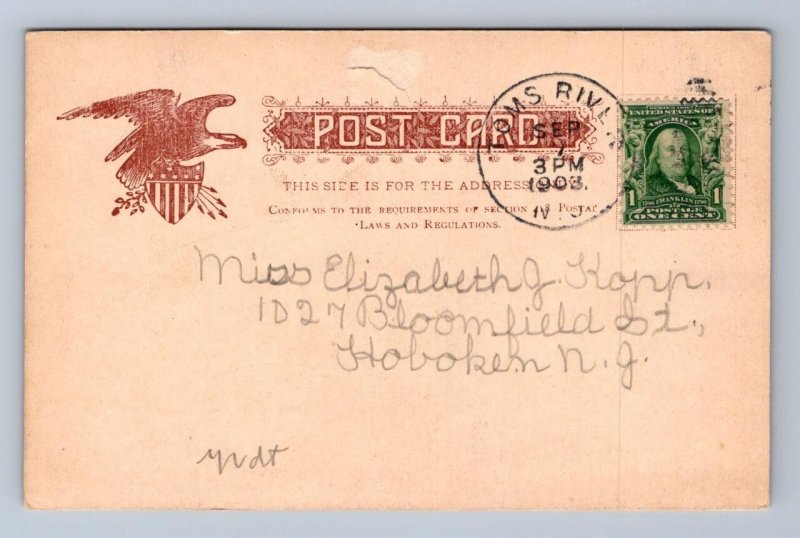 POST CARD
THIS SIDE IS FOR THE ADDRESS
CONFORMS TO THE REQUIREMENTS OF SECTION 418 POSTAL
LAWS AND REGULATIONS.
TOMS RIVER
SEP
7
3 PM
1903.
N J
SERIES 1902
UNITED STATES OF
AMERICA
1706 FRANKLIN 1790
1 POSTAGE 1
ONE CENT
Miss Elizabeth J. Kopp.
1027 Bloomfield St.,
Hoboken N. J.